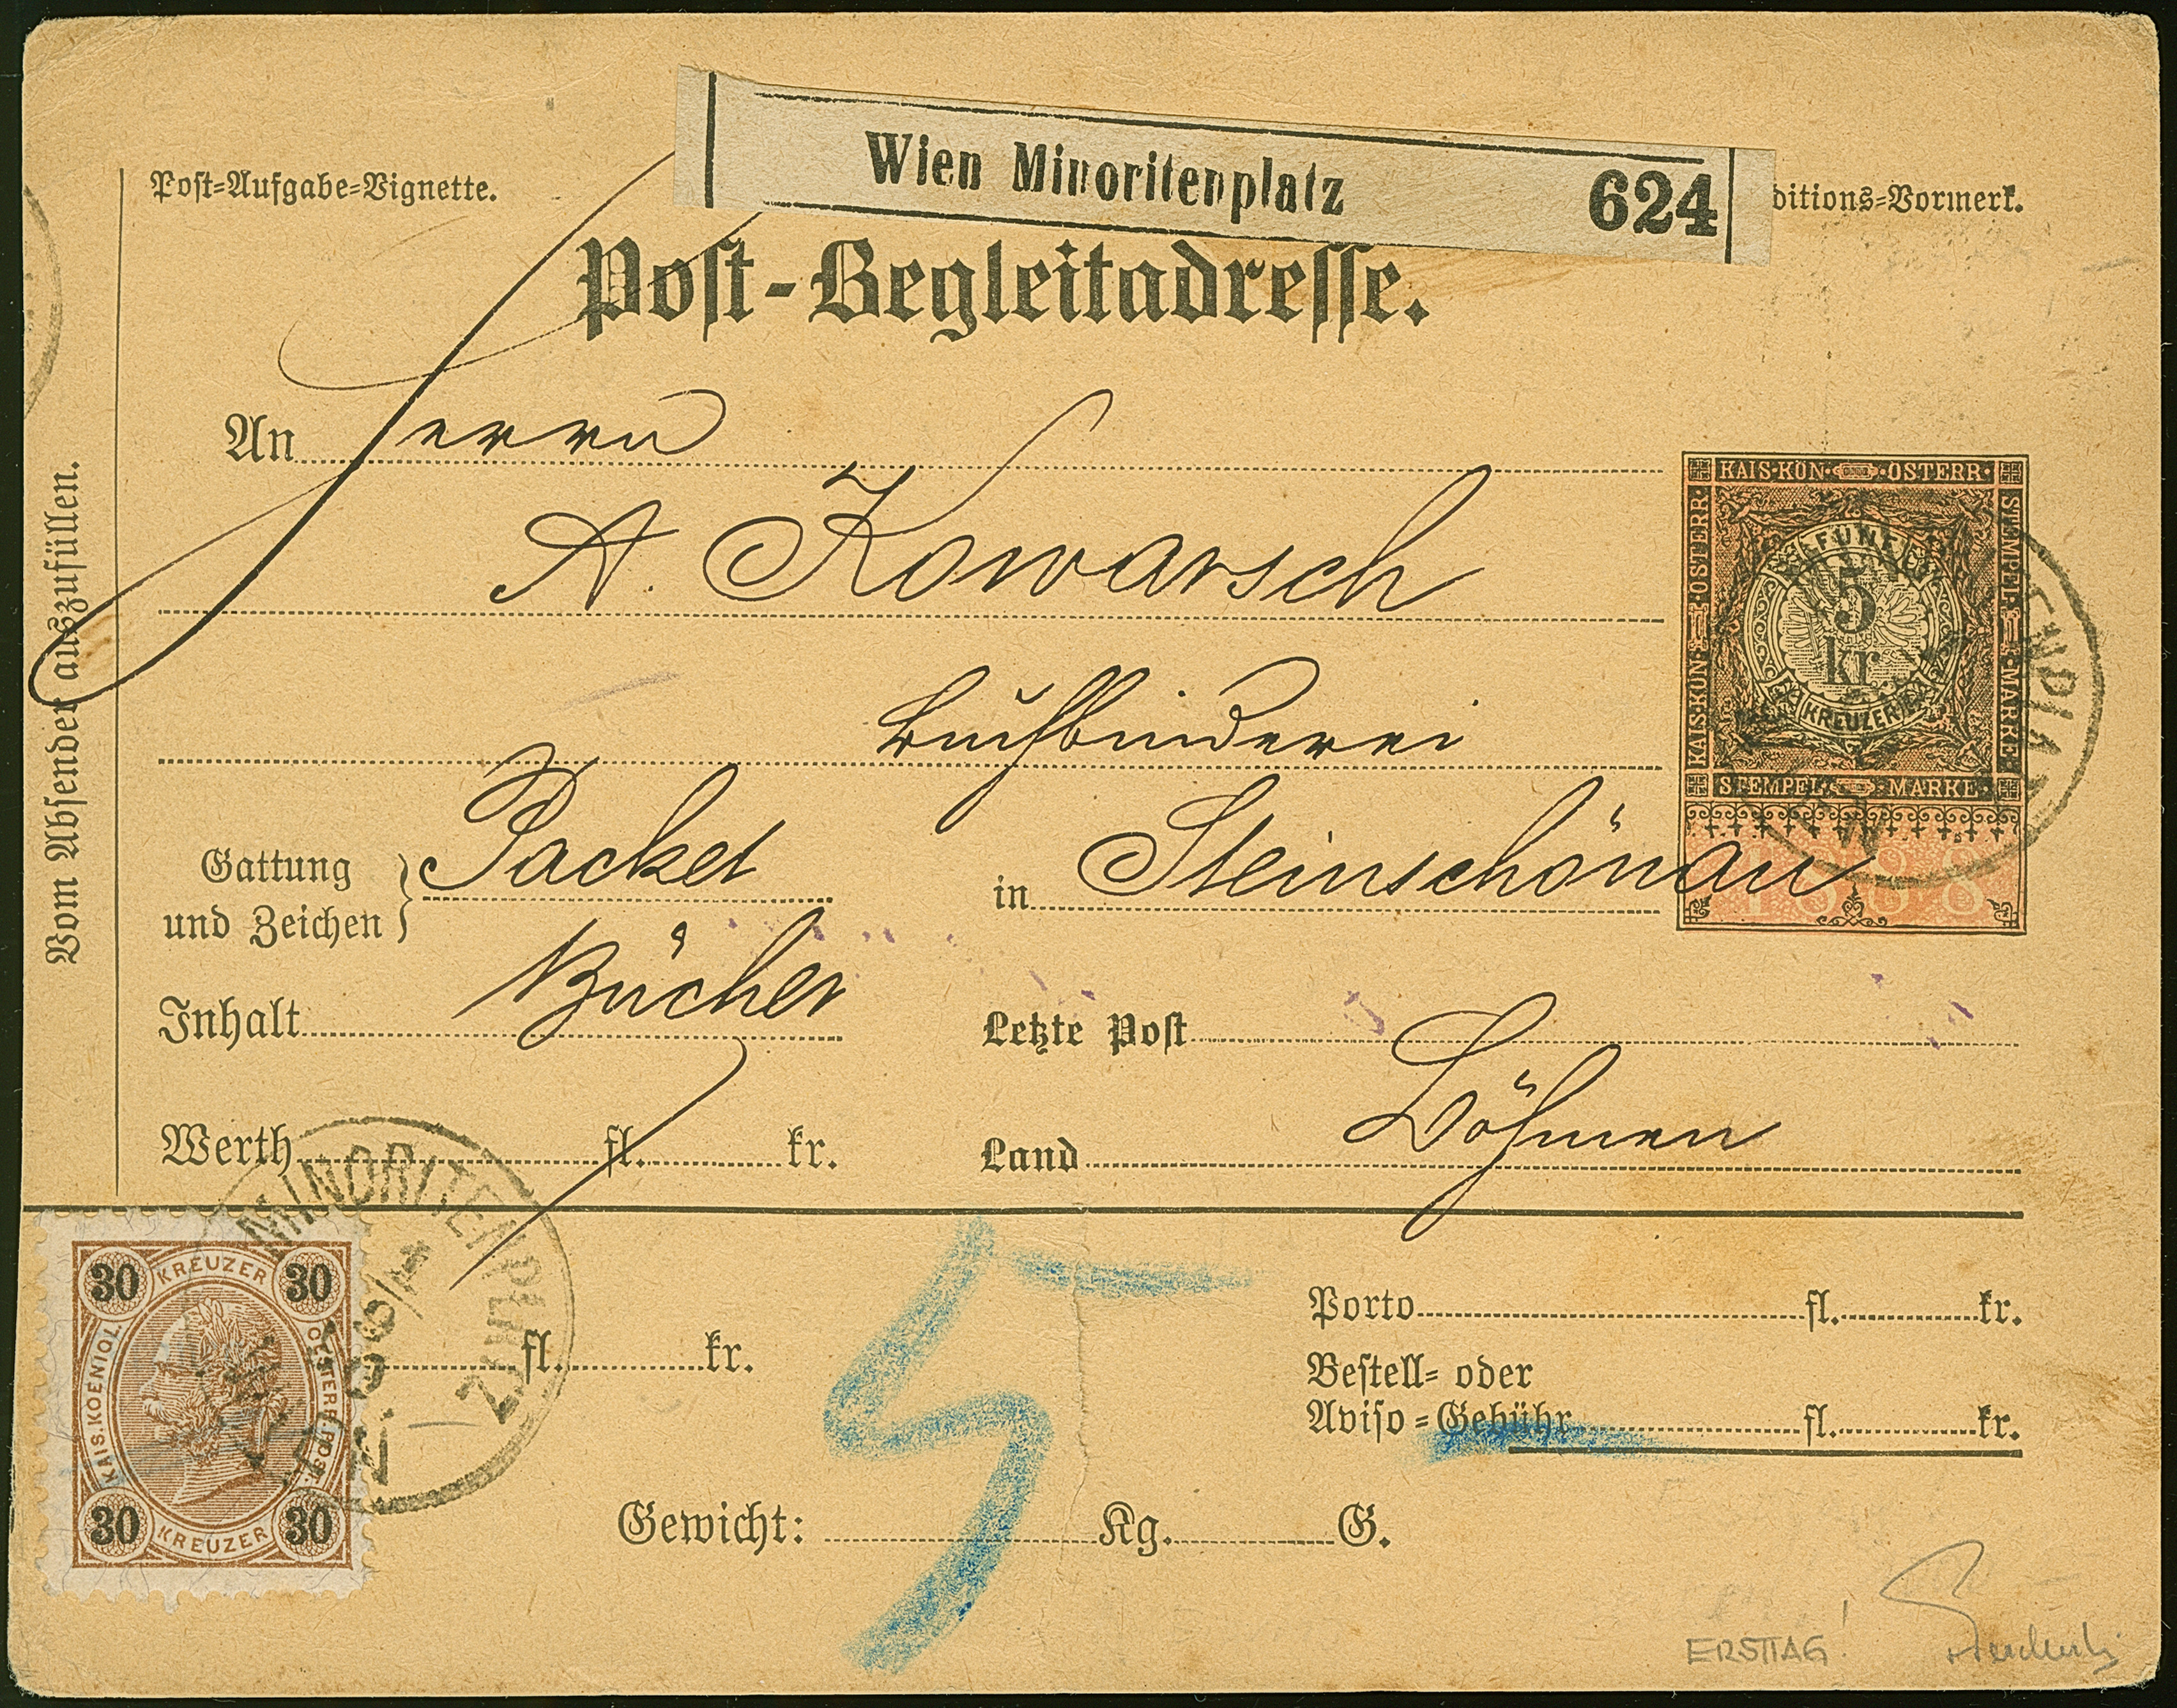 Wien Minoritenplatz 624
Post-Aufgabe-Vignette.
ditions-Vormerk.
Post-Begleitadresse.
Vom Absender auszufüllen.
An Herrn
A. Kowarsch
Buchbinderei
KAIS·KÖN· ·ÖSTERR·
KAIS·KÖN· ·ÖSTERR·
STEMPEL· ·MARKE·
FÜNF
5
kr
KREUZER
STEMPEL· ·MARKE·
1888
Gattung und Zeichen } Packet
in Steinschönau
Inhalt Bücher
Letzte Post
Werth fl. kr.
Land Böhmen
MINORITENPLATZ
WIEN
30 KREUZER 30
KAIS. KOENIGL. OESTERR. POST.
30 KREUZER 30
fl. kr.
5
Porto fl. kr.
Bestell- oder
Aviso-Gebühr fl. kr.
Gewicht: Kg. G.
ERSTTAG!